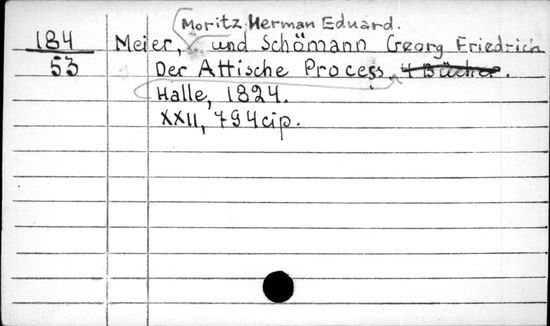 Moritz Herman Eduard.
184 Meier, und Schömann Georg Friedrich
53 Der Attische Process, 4 Bücher.
Halle, 1824.
XXII, 794 cip.